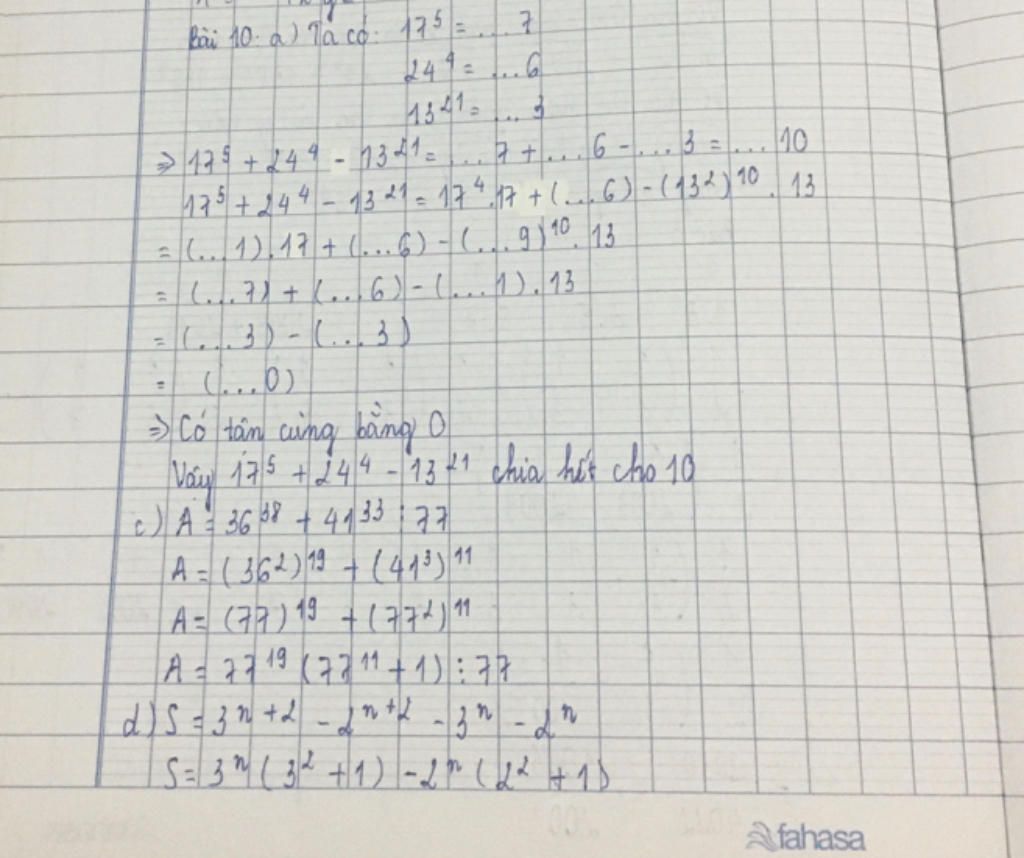 Bài 10: a) Ta có: 17⁵ = ... 7
24⁴ = ... 6
13²¹ = ... 3
⇒ 17⁵ + 24⁴ - 13²¹ = ... 7 + ... 6 - ... 3 = ... 10
17⁵ + 24⁴ - 13²¹ = 17⁴.17 + (...6) - (13²)¹⁰. 13
= (...1).17 + (...6) - (...9)¹⁰. 13
= (...7) + (...6) - (...1).13
= (...3) - (...3)
= (...0)
⇒ Có tân cùng bằng 0
Vây 17⁵ + 24⁴ - 13²¹ chia hết cho 10
c) A = 36³⁸ + 41³³ ⋮ 77
A = (36²)¹⁹ + (41³)¹¹
A = (77)¹⁹ + (77²)¹¹
A = 77¹⁹ (77¹¹ + 1) ⋮ 77
d) S = 3ⁿ⁺² - 2ⁿ⁺² - 3ⁿ - 2ⁿ
S = 3ⁿ (3² + 1) - 2ⁿ (2² + 1)
fahasa